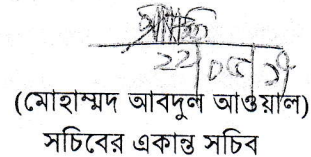 (মোহাম্মদ আবদুল আওয়াল)
সচিবের একান্ত সচিব